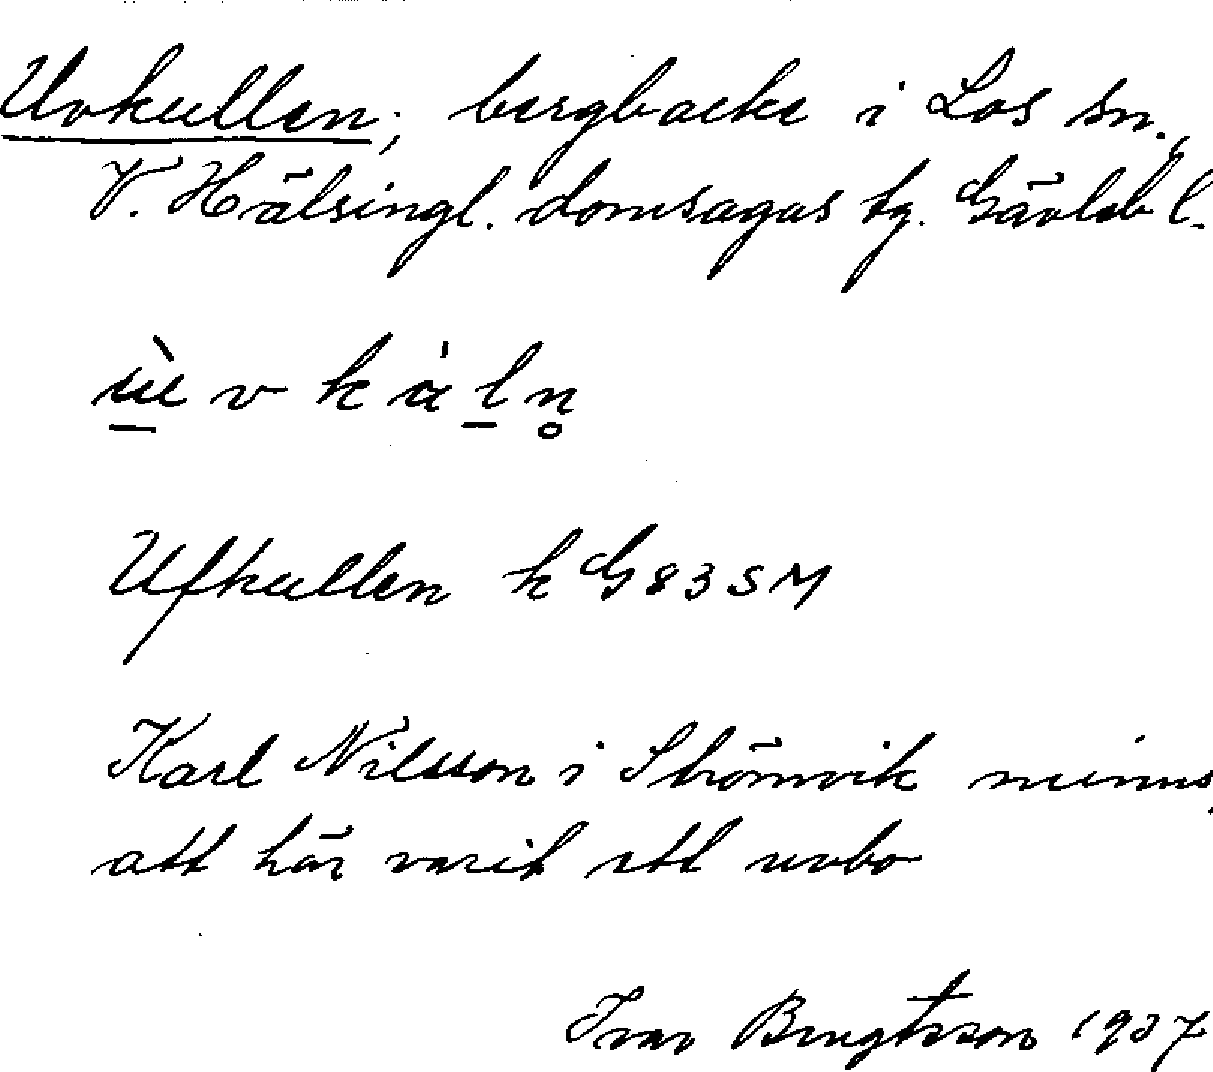 Uvkullen; bergbacke i Los sn.,
V. Hälsingl. domsagas tg. Gävleb l.
ù̱vkȧḻn̥
Ufkullen k G 83 SM
Karl Nilsson i Strömvik minns,
att här varit ett uvbo
Ivar Bengtsson 1937